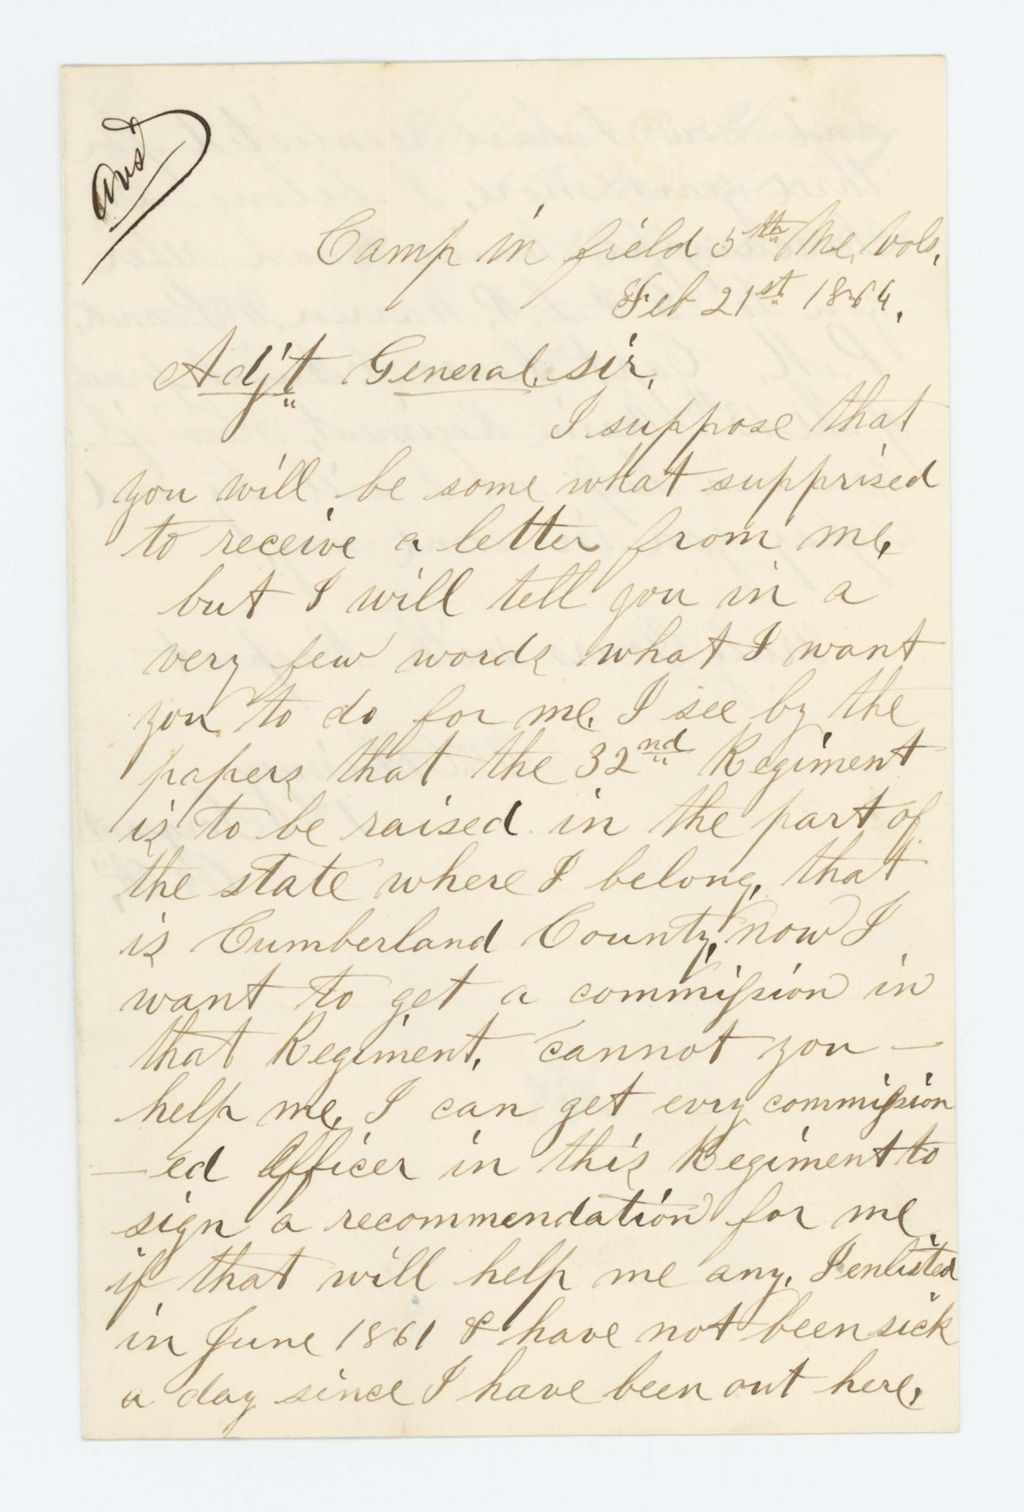 Ansd
Camp in field 5th Me, Vols,
Feb 21st 1864,
Adjt General, sir,
I suppose that
you will be some what supprised
to receive a letter from me,
but I will tell you in a
very few words what I want
you to do for me, I see by the
papers that the 32nd Regiment
is to be raised in the part of
the state where I belong, that
is Cumberland County, now I
want to get a commission in
that Regiment, cannot you —
help me, I can get evry commission
—ed Officer in this Regiment to
sign a recommendation for me
if that will help me any, I enlisted
in June 1861 & have not been sick
a day since I have been out here,